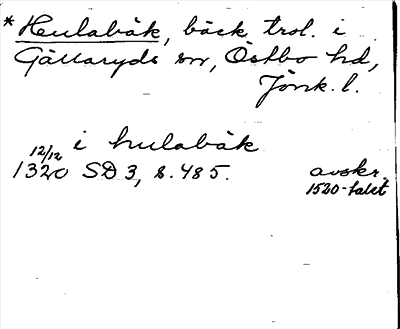 * Hulabäk, bäck trol. i
Gällaryds sn, Östbo hd,
Jönk. l.
12/12 i hulabäk
1320 SD 3, s. 485. avskr.
1520-talet